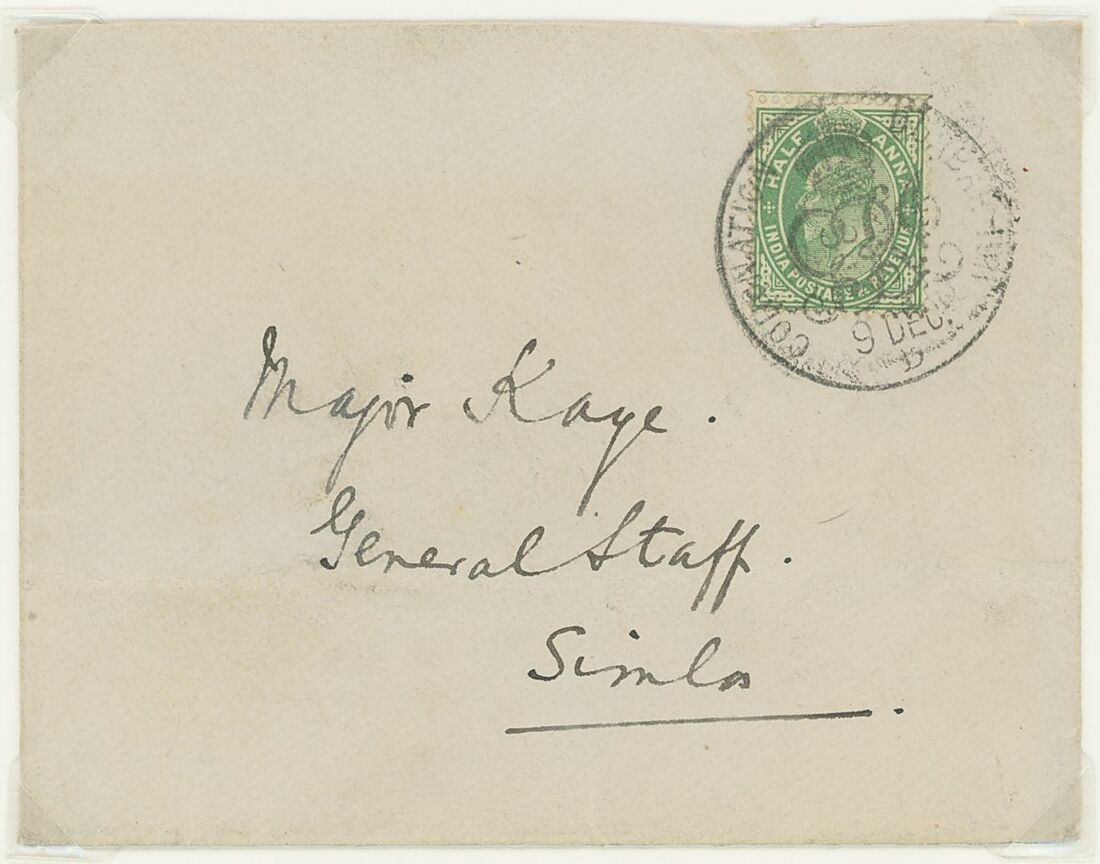 HALF ANNA
INDIA POSTAGE & REVENUE
CORONATION DURBAR
9 DEC
Major Kaye.
General Staff.
Simla.